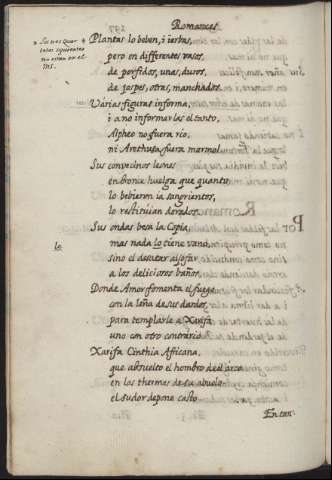 Romances
Los tres Quar-
tetes siguientes
no estan en el
MS.
Plantas lo beben, i ierbas,
pero en differentes vasos,
de porfidos, unas, duros,
de jaspes, otras, manchados.
Varias figuras informa,
i a no informarlas el tanto,
Alpheo no fuera rio,
ni Arethusa fuera marmol.
Sus convecinos
en bronce huelga que quanto
lo bebieron sangrientos,
lo restituian dorados.
Sus ondas besa la Copia,
mas nada lo tiene vano,
lo
sino el desatar aljofar
a los deliciosos baños,
Donde Amor fomenta el fuego
con la leña de sus dardos,
para templarle a Xarifa
uno con otro contrario.
Xarifa Cinthia Affricana,
que absuelto el hombro de el arco
en las thermas de su abuelo
el sudor depone casto.
En tan